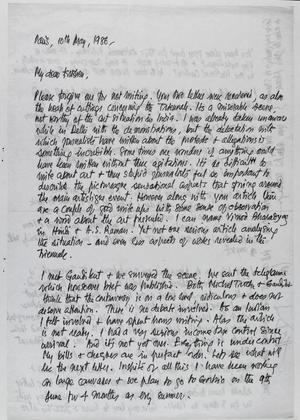 Paris, 10th May, 1986.
My dear Krishen,
Please forgive me for not writing. Your two letters were received, as also
the heap of cuttings concerning the Triennale. Its a miserable scene,
not worthy of the art situation in India. I was already taken unawares
while in Delhi with the demonstrations, but the debate
which journalists have written about the protests & allegations is
something incredible. Some times one wonders if anything could
have been written without these agitations. Its so difficult to
write about art & these stupid journalists feel so important to
describe the picturesque sensational aspects that spring around
the main artistic event. However along with your article there
are a couple of good write ups with some sense of observation
& a word about the art presented. I can name Nirmal
in Hindi & A.S. Raman. Yet not one serious article analysing
the situation - and even two aspects of works revealed in the
Triennale.
I met Gaudibert & we surveyed the scene. We sent the telegramme
which I believe was published. Both, Michel Troche, & Gaudibert
think that the controversy is on a low level, ridiculous & does not
deserve attention. There is no debate involved. As an Indian
I felt involved & have spent hours writing. Alas the article
is not ready. I had a very serious income tax control since
arrival. And its not yet over. Everything is under control
My bills & cheques are in perfect order. Lets see what will
be the next
Inspite of all this I have been working
on large canvases & we plan to go to Gorbio on the 9th
June for 4 months as every summer.